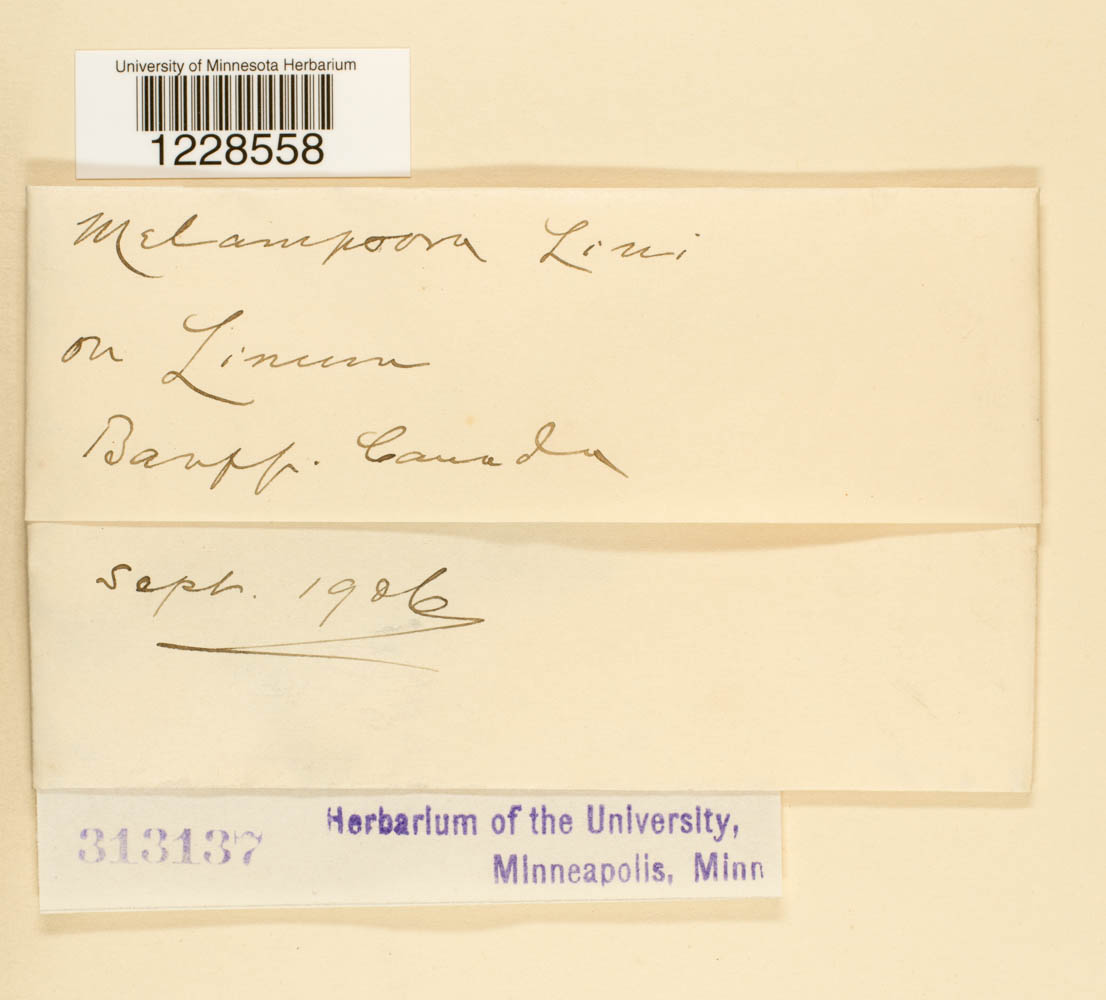 University of Minnesota Herbarium
1228558
Melampsora Lini
on Linum
Banff. Canada
Sept. 1906
313137
Herbarium of the University,
Minneapolis, Minn